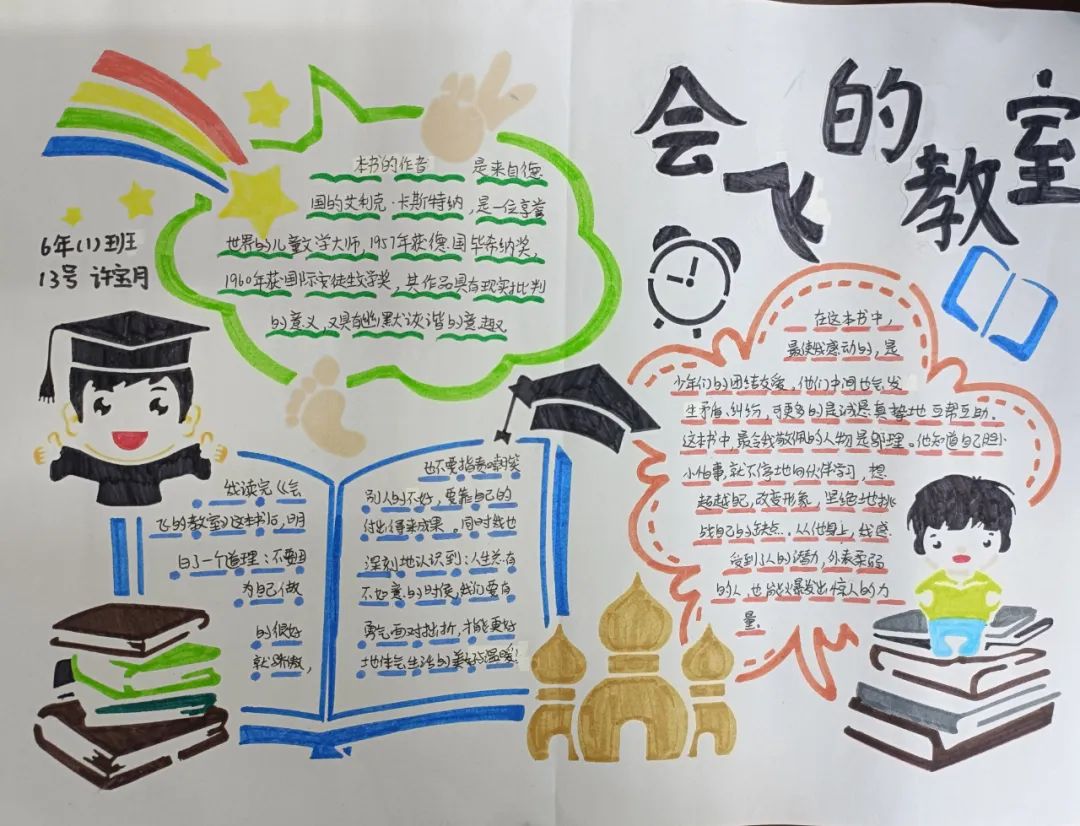 会飞的教室
6年(1)班
13号 许宝月
本书的作者 是来自德
国的艾利克·卡斯特纳,是一位享誉
世界的儿童文学大师,1957年获德国毕希纳奖,
1960年获国际安徒生文学奖,其作品具有现实批判
的意义,又具有幽默诙谐的意趣
在这本书中,
最使我感动的,是
少年们的团结友爱,他们中间也会发
生矛盾、纠纷,可更多的是诚恳真挚地互帮互助。
这本书中,最令我敬佩的人物是乌理。他知道自己胆小
小怕事,就不停地向伙伴学习,想
超越自己,改变形象,坚绝地挑
战自己的缺点。从他身上,我感
受到了人的潜力,外表柔弱
的人,也能够爆发出惊人的力
量。
我读完《会
飞的教室》这本书后,明
白了一个道理:不要因
为自己做
的很好
就骄傲,
也不要指责嘲笑
别人的不好,要靠自己的
付出得来成果。同时我也
深刻地认识到:人生总有
不如意的时候,我们要有
勇气面对挫折,才能更好
地体会生活的美好温暖!